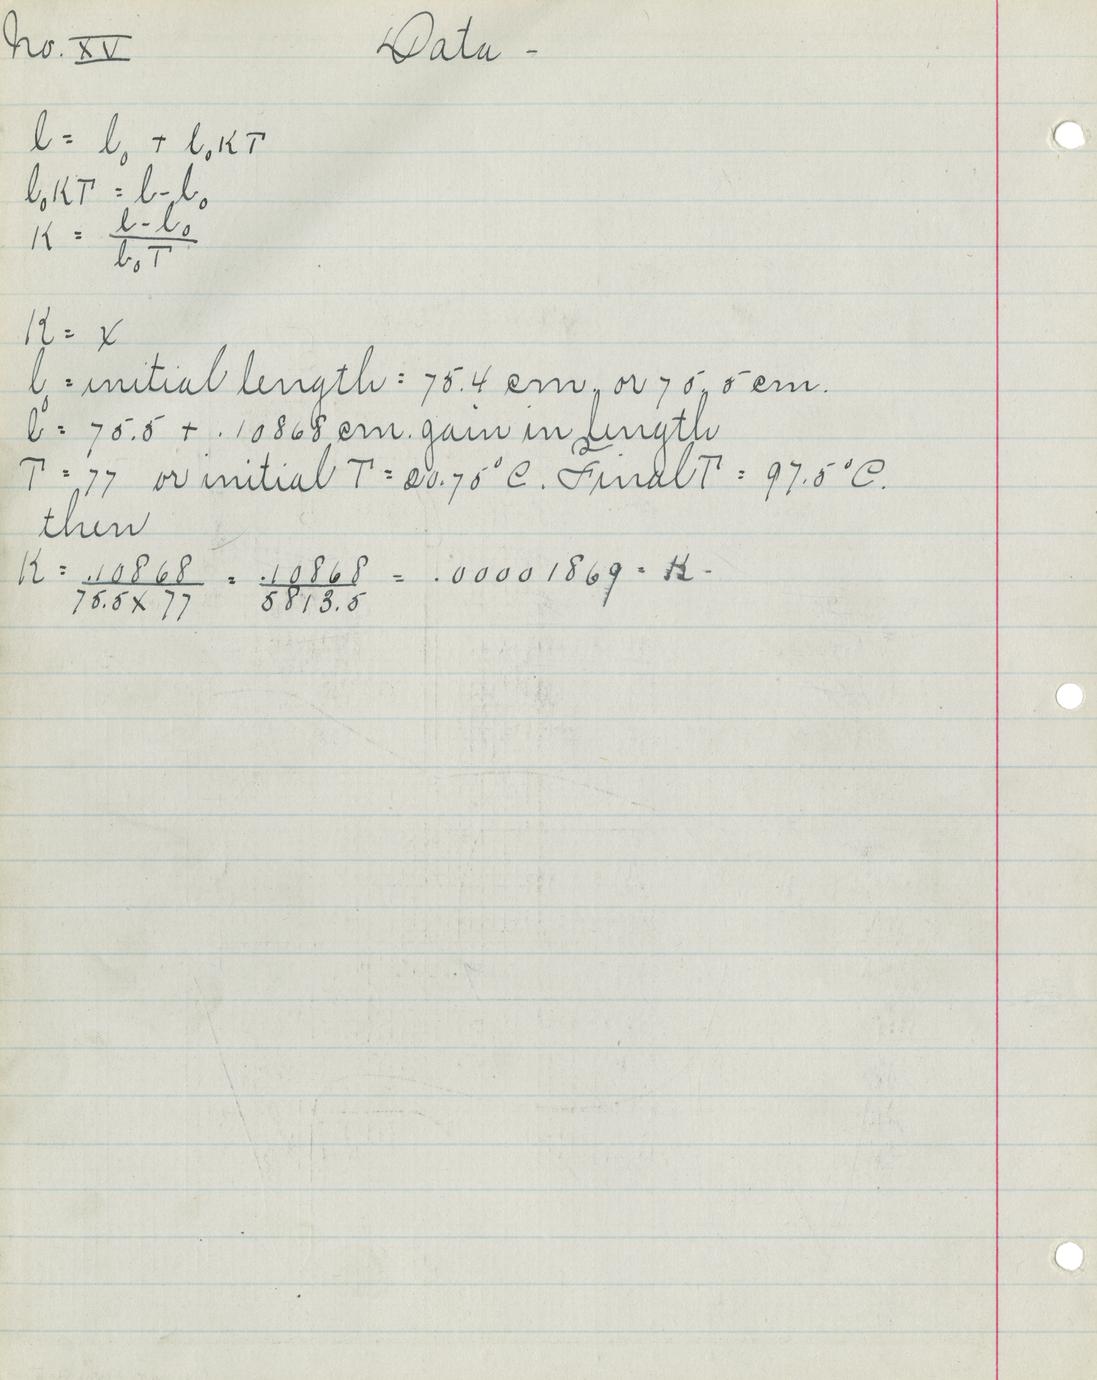 No. XV Data -
l = l₀ + l₀KT
l₀KT = l - l₀
K = (l - l₀) / (l₀T)
K = X
l₀ = initial length = 75.4 cm. or 75.5 cm.
l = 75.5 + .10868 cm. gain in length
T = 77 or initial T = 20.75°C. Final T = 97.5°C.
then
K = .10868 / (75.5 x 77) = .10868 / 5813.5 = .00001869 = K -